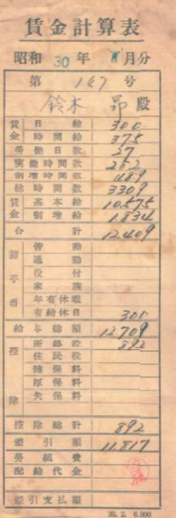 賃金計算表
昭和 30年 8月分
第 167 号
鈴木 昂 殿
賃金 日給 300
時間給 375
労働日数 27
実働時間数 252
割増時間数 489
総時間数 3309
賃金 基本給 10.575
割増給 1.834
合計 12.409
諸手当 皆勤
通勤
役付
家族
年有休暇
有給休日 300
給与総額 12.709
控除 所得税 892
住民税
健保料
厚保料
失保料
控除総計 892
差引額 11.817
労組費
配給代金
差引支払額
30. 2. 6.000